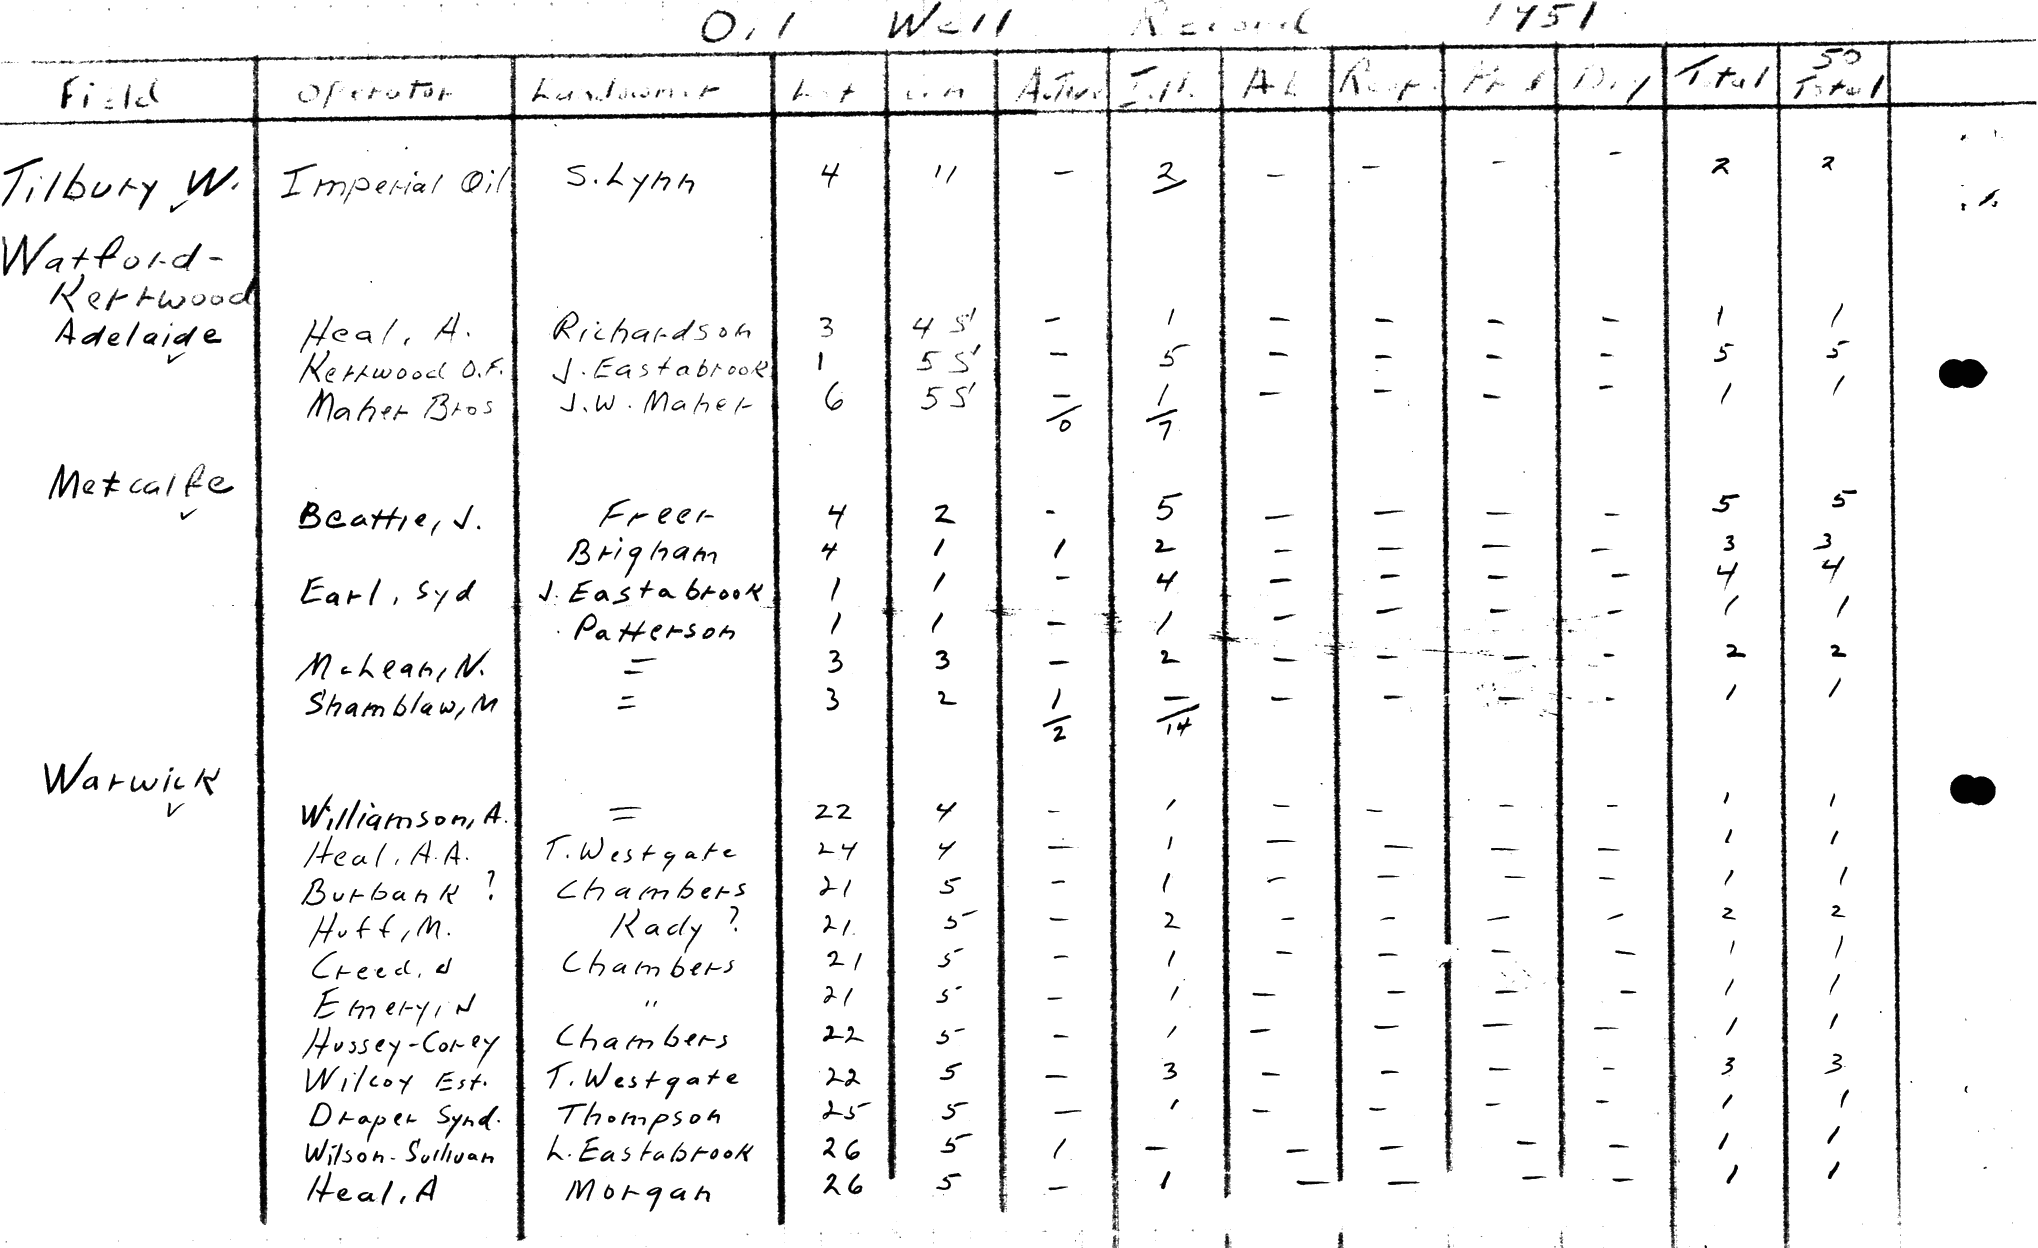 Oil Well Record 1951
Field Operator Landowner Lot Con Active Idle Ab. Total 50 Total
Dry
Tilbury W. Imperial Oil S. Lynn 4 11 - 2 - - - - 2 2
Watford-
Kerrwood
Adelaide Heal, A. Richardson 3 4 S' - 1 - - - - 1 1
Kerrwood O.F. J. Eastabrook 1 5 S' - 5 - - - - 5 5
Maher Bros J.W. Maher 6 5 S' - 1 - - - - 1 1
0 7
Metcalfe
Beattie, J. Freer 4 2 - 5 - - - - 5 5
Brigham 4 1 1 2 - - - - 3 3
Earl, Syd J. Eastabrook 1 1 - 4 - - - - 4 4
Patterson 1 1 - 1 - - - - 1 1
McLean, N. = 3 3 - 2 - - - - 2 2
Shamblaw, M = 3 2 1 - - - - - 1 1
2 14
Warwick
Williamson, A. = 22 4 - 1 - - - - 1 1
Heal, A.A. T. Westgate 24 4 - 1 - - - - 1 1
Burbank ? Chambers 21 5 - 1 - - - - 1 1
Huff, M. Kady ? 21 5 - 2 - - - - 2 2
Creed, J Chambers 21 5 - 1 - - - - 1 1
Emery, N " 21 5 - 1 - - - - 1 1
Hussey-Corey Chambers 22 5 - 1 - - - - 1 1
Wilcox Est. T. Westgate 22 5 - 3 - - - - 3 3
Draper Synd. Thompson 25 5 - 1 - - - - 1 1
Wilson-Sullivan L. Eastabrook 26 5 1 - - - - - 1 1
Heal, A Morgan 26 5 - 1 - - - - 1 1